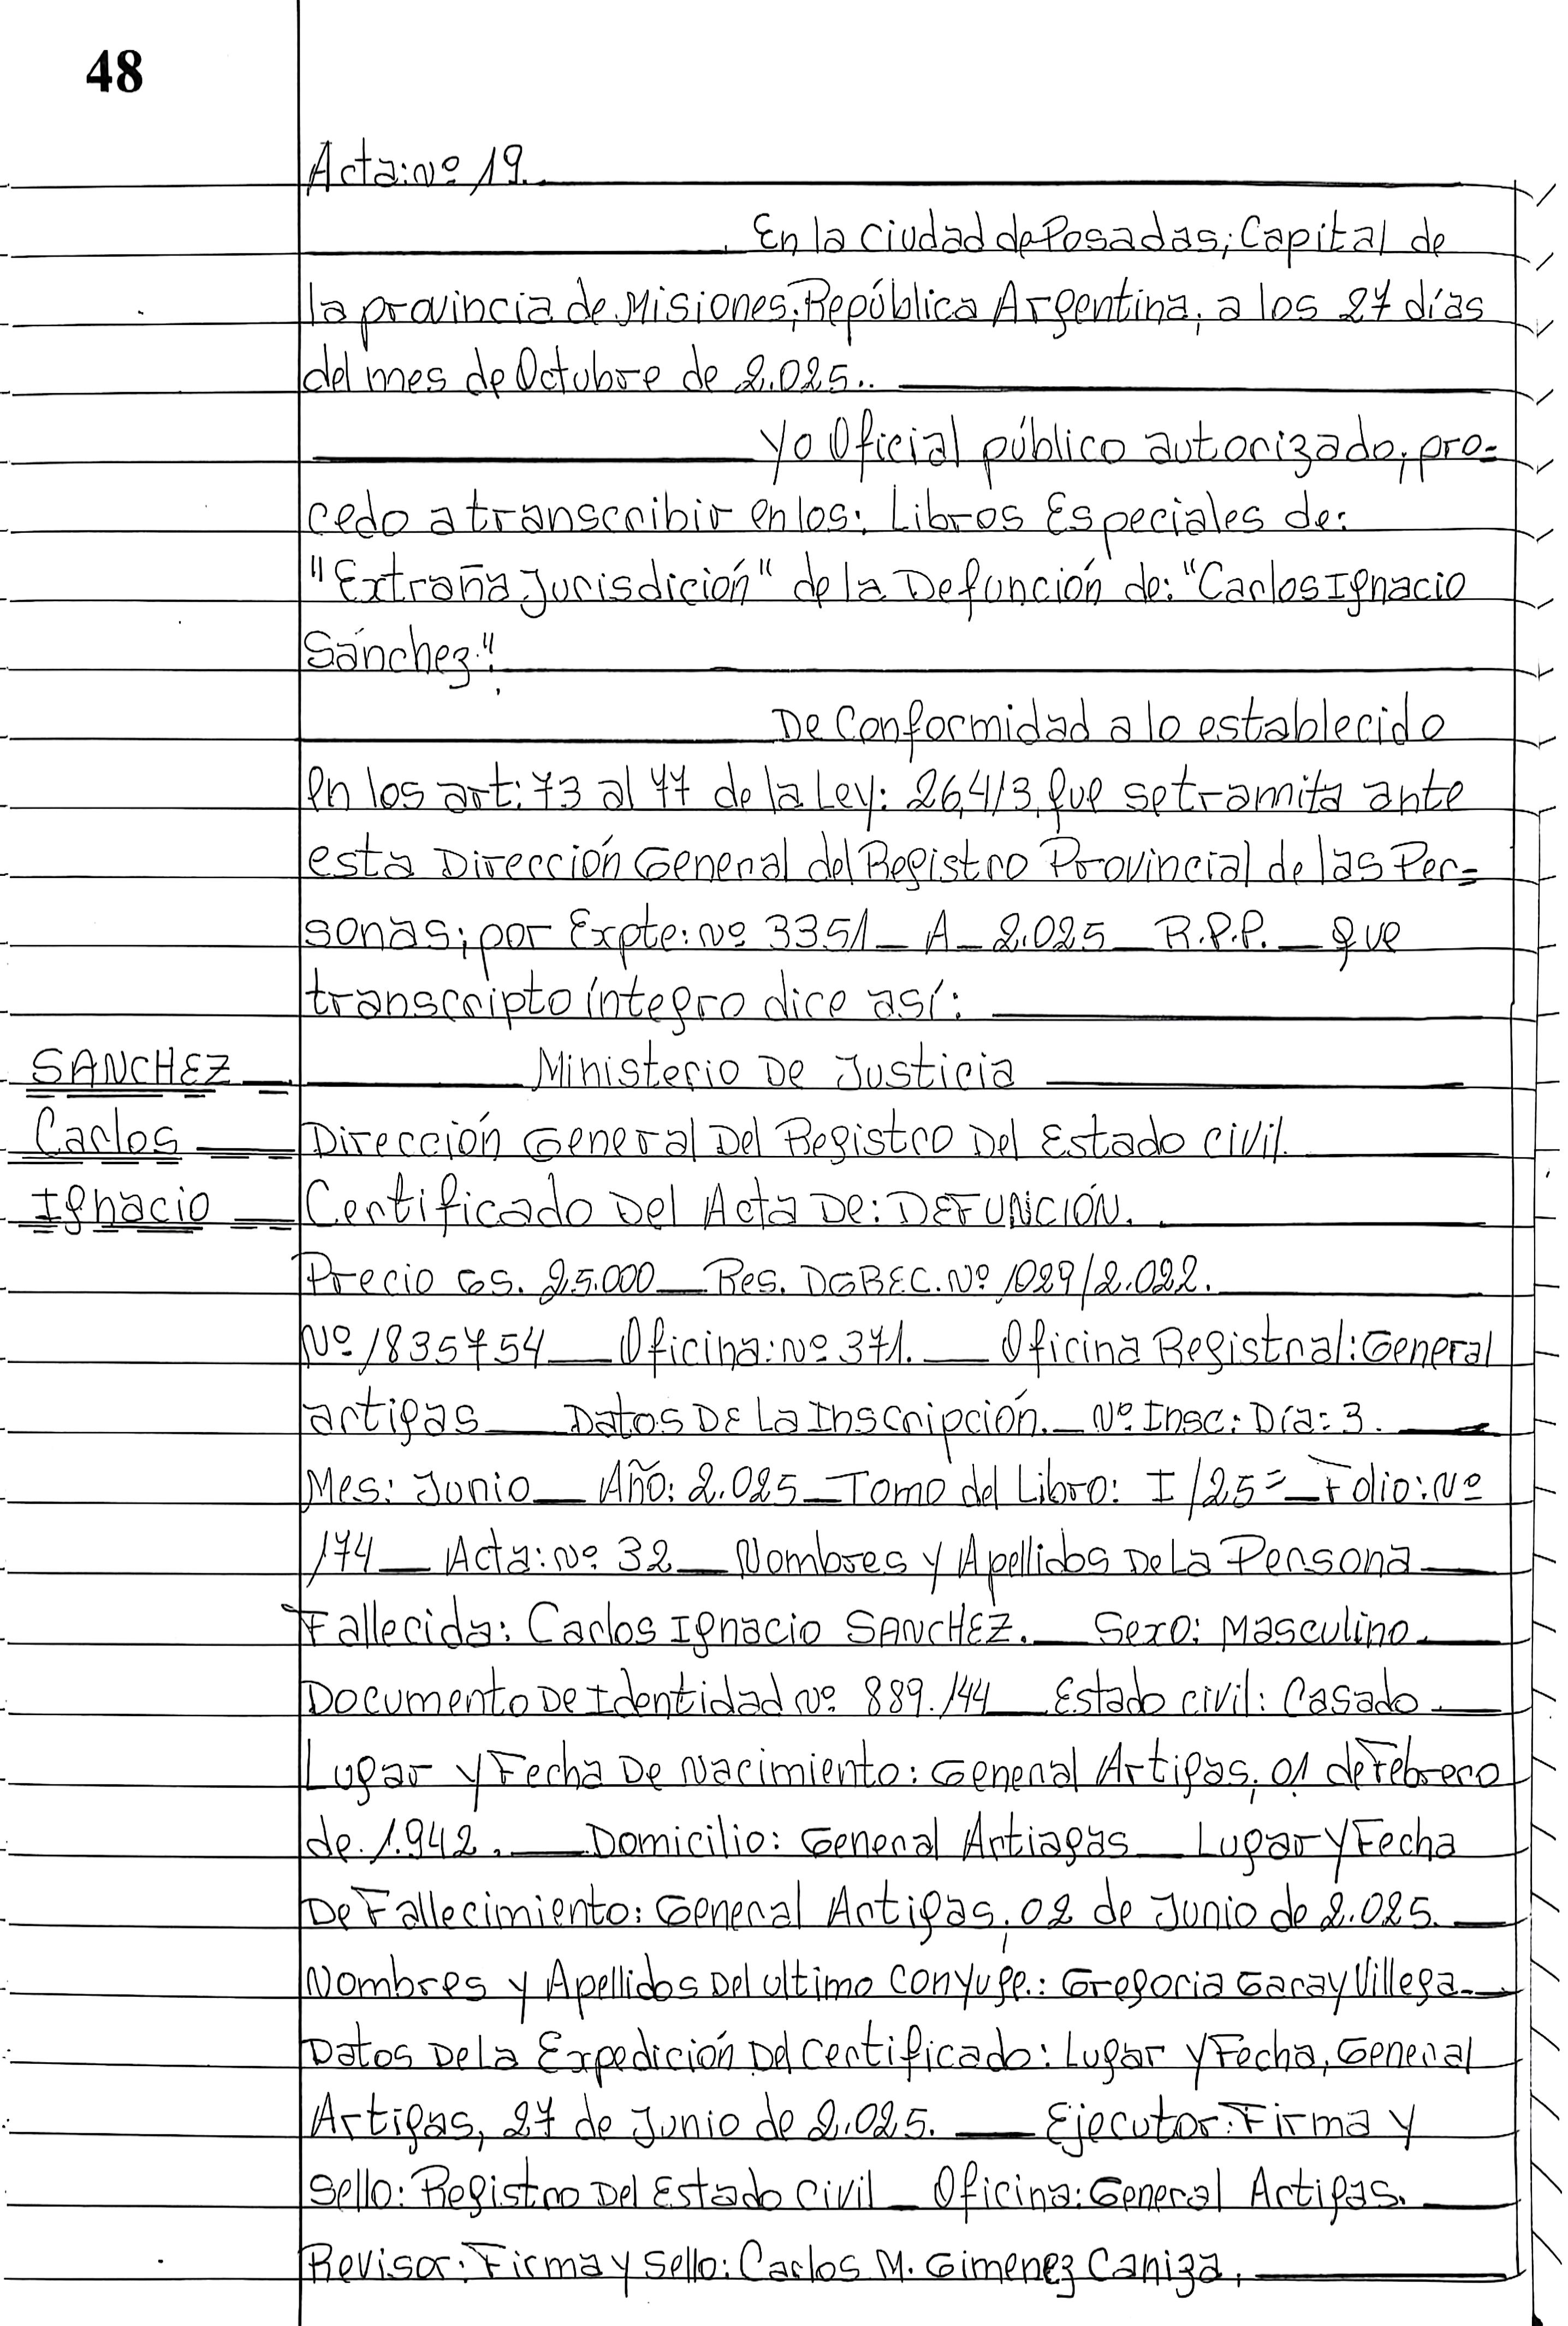 48
Acta: Nº 19.
En la Ciudad de Posadas; Capital de
la provincia de Misiones; República Argentina; a los 27 días
del mes de Octubre de 2.025..
Yo Oficial público autorizado; pro=
cedo a transcribir en los: Libros Especiales de:
"Extraña Jurisdición" de la Defunción de: "Carlos Ignacio
Sánchez".
De Conformidad a lo establecido
en los art: 73 al 77 de la Ley: 26,413, que se tramita ante
esta Dirección General del Registro Provincial de las Per=
sonas; por Expte: Nº 3351 _ A _ 2.025 _ R.P.P. _ que
transcripto íntegro dice así:
SANCHEZ Ministerio De Justicia
Carlos Dirección General Del Registro Del Estado Civil.
Ignacio Certificado Del Acta De: DEFUNCIÓN.
Precio GS. 25.000 _ Res. DGREC. Nº 1029/2.022.
Nº 1835754 _ Oficina: Nº 371. _ Oficina Registral: General
artigas _ Datos DE La Inscripción. _ Nº Insc: Día: 3.
Mes: Junio _ Año: 2.025 _ Tomo del Libro: I/25= _ Folio: Nº
174 _ Acta: Nº 32 _ Nombres y Apellidos De La Persona
Fallecida: Carlos Ignacio SANCHEZ. _ Sexo: Masculino.
Documento De Identidad Nº 889.144 _ Estado civil: Casado
Lugar y Fecha De Nacimiento: General Artigas, 01 de Febrero
de 1.942. _ Domicilio: General Artiagas _ Lugar y Fecha
De Fallecimiento: General Artigas, 02 de Junio de 2.025.
Nombres y Apellidos Del ultimo Conyuge.: Gregoria Garay Villega.
Datos De la Expedición Del Certificado: Lugar y Fecha, General
Artigas, 27 de Junio de 2.025. _ Ejecutor: Firma y
Sello: Registro Del Estado Civil _ Oficina: General Artigas.
Revisor: Firma y Sello: Carlos M. Gimenez Caniza.